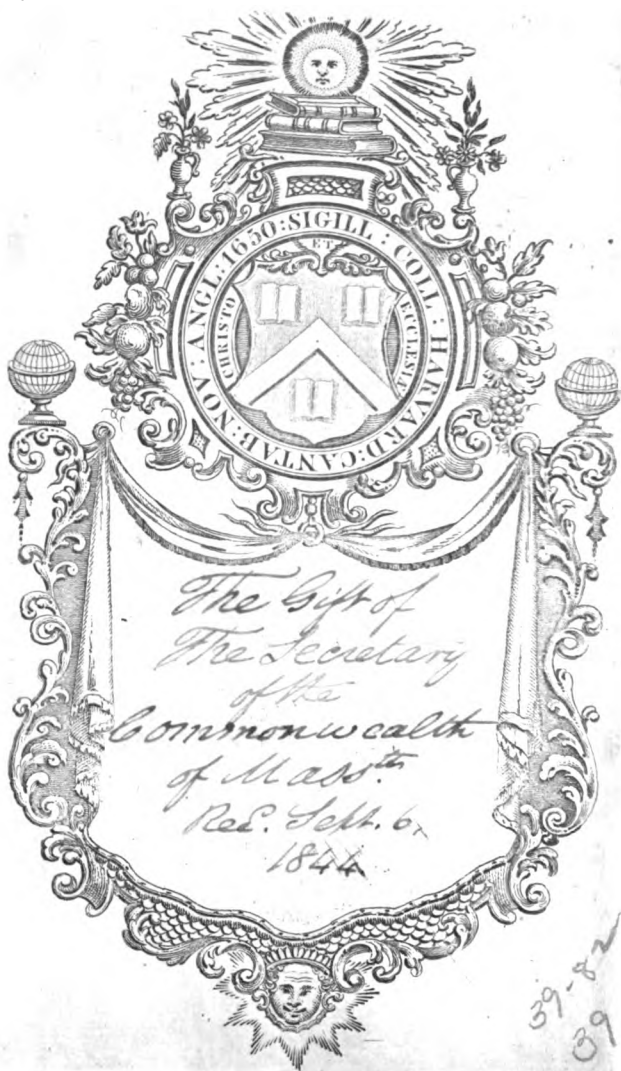 SIGILL : COLL : HARVARD : CANTAB : NOV : ANGL : 1650 :
ET
CHRISTO
ECCLESIÆ
The Gift of
The Secretary
of the
Commonwealth
of Mass.ts
Rec. Sept. 6,
1844
39-82
39